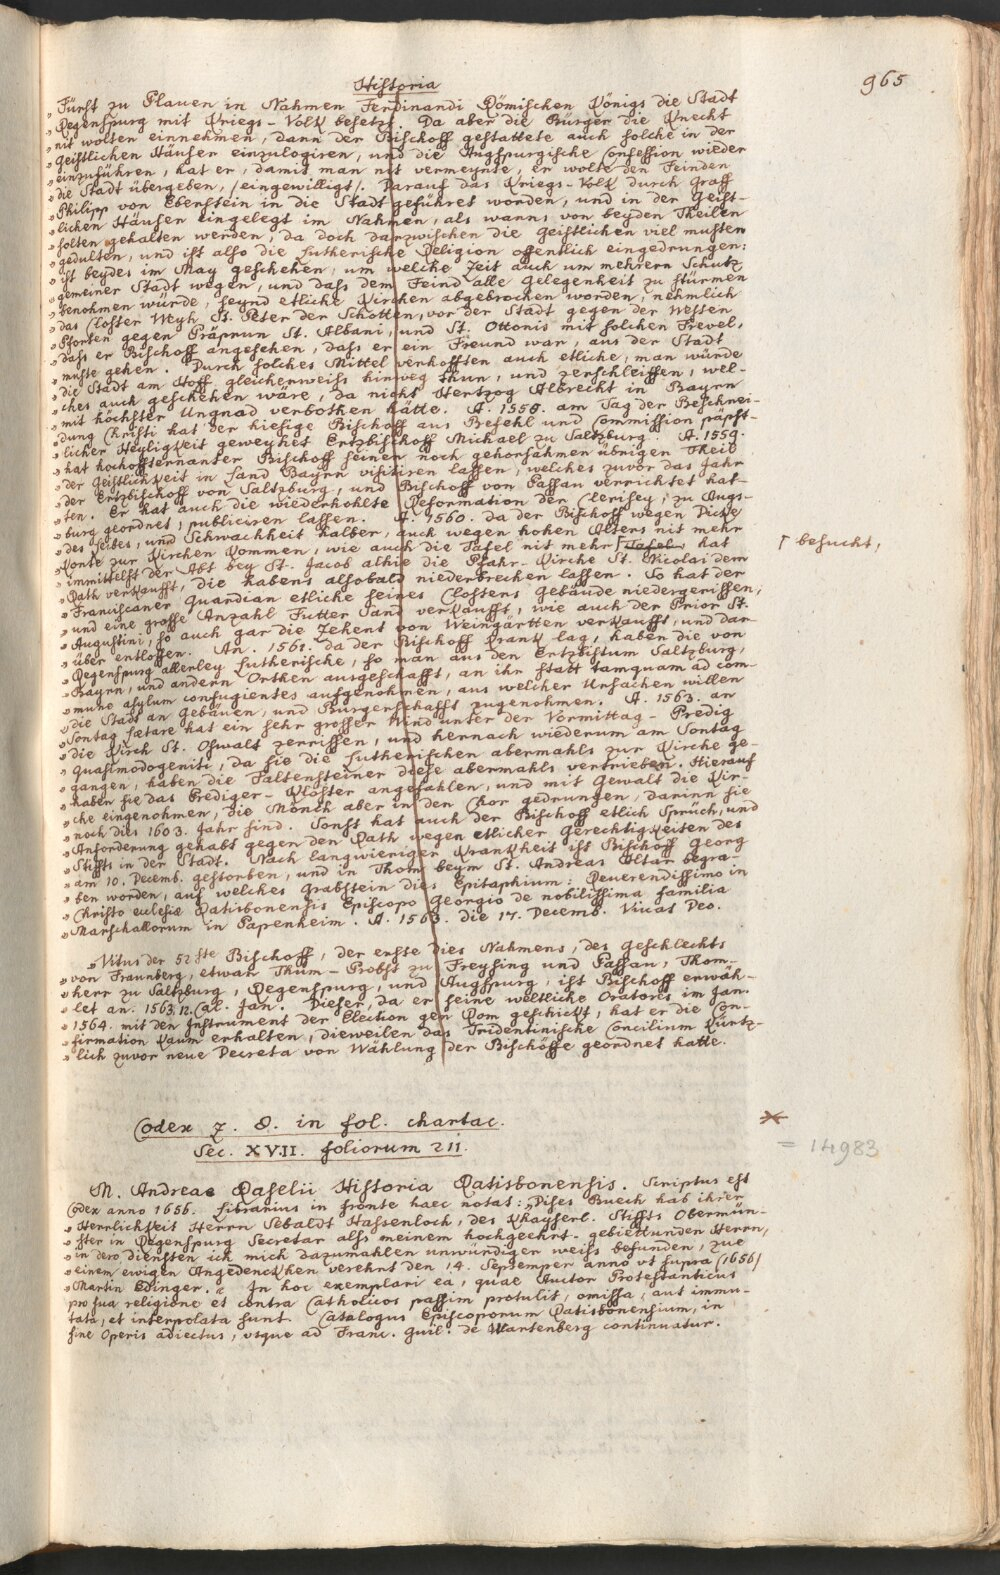 965
Historia
„ Fürst zu Plauen in Nahmen Ferdinandi Römischen Königs die Stadt
„ Regenspurg mit Kriegs-Volk besetzt. Da aber die Bürger die Knecht
„ nit wolten einnehmen, dann der Bischoff gestattete auch solche in der
„ geistlichen Häuser einzulogiren, und die Augspurgische Confession wieder
„ einzuführen, hat er, damit man nit vermeynte, er wolte den Feinden
„ die Stadt übergeben, /eingewilligt/. Darauf das Kriegs-Volk durch Graff
„ Philipp von Eberstein in die Stadt geführet worden, und in der Geist-
„ lichen Häuser eingelegt im Nahmen, als wanns von beyden Theilen
„ solten gehalten werden, da doch darzwischen die Geistlichen viel musten
„ gedulten, und ist also die Lutherische Religion offentlich eingedrungen:
„ ist beydes im May geschehen, um welche Zeit auch um mehrern Schutz
„ gemeiner Stadt wegen, und dass dem Feind alle Gelegenheit zu stürmen
„ benohmen würde, seynd etliche Kirchen abgebrochen worden, nehmlich
„ das Closter Weyh St. Peter der Schotten, vor der Stadt gegen der Westen
„ Pforten gegen Präprun St. Albani, und St. Ottonis mit solchen Frevel,
„ dass er Bischoff angesehen, dass er ein Freund war, aus der Stadt
„ muste gehen. Durch solches Mittel verhofften auch etliche, man würde
„ die Stadt am Hoff gleicherweiss hinweg thun, und zerschleiffen, wel-
„ ches auch geschehen wäre, da nicht Hertzog Albrecht in Bayrn
„ mit höchster Ungnad verbothen hätte. A. 1558. am Tag der Beschnei-
„ dung Christi hat der hiesige Bischoff aus Befehl und Commission päpst-
„ licher Heyligkeit geweyhet Ertzbischoff Michael zu Saltzburg. A. 1559.
„ hat hochoffternanter Bischoff seinen noch gehorsahmen übrigen Theil
„ der Geistlichkeit in Land Bayrn visitiren lassen, welches zuvor das Jahr
„ der Ertzbischoff von Saltzburg, und Bischoff von Passau verrichtet hat-
„ ten. Er hat auch die wiederhohlte Reformation der Clerisey, zu Augs-
„ burg geordnet, publiciren lassen. A. 1560. da der Bischoff wegen Dicke
„ des Leibes, und Schwachheit halber, auch wegen hohen Alters nit mehr
„ konte zur Kirchen kommen, wie auch die Tafel nit mehr ſ Tafel hat
ſ besucht,
„ immittelst der Abt bey St. Jacob alhie die Pfahr-Kirche St. Nicolai dem
„ Rath verkaufft, die habens alsobald niederbrechen lassen. So hat der
„ Franciscaner Guardian etliche seines Closters Gebäude niedergerissen,
„ und eine grosse Anzahl Futter Sand verkaufft, wie auch der Prior St.
„ Augustini, so auch gar die Zehent von Weingärtten verkaufft, und dar-
„ über entloffen. An. 1561. da der Bischoff krank lag, haben die von
„ Regenspurg allerley Lutherische, so man aus den Ertzbistum Saltzburg,
„ Bayrn, und andern Orthen ausgeschafft, an ihr statt tamquam ad com-
„ mune asylum confugientes aufgenohmen, aus welcher Ursachen willen
„ die Stadt an Gebäuen, und Burgerschafft zugenohmen. A. 1563. an
„ Sontag Lætare hat ein sehr grosser Wind unter der Vormittag-Predig
„ die Kirch St. Oswalt zerrissen, und hernach wiederum am Sontag
„ quasimodogeniti, da sie die Lutherischen abermahls zur Kirche ge-
„ gangen, haben die Faltensteiner diese abermahls vertrieben. Hierauf
„ haben sie das Prediger-Kloster angefahlen, und mit Gewalt die Kir-
„ che eingenohmen, die Mönch aber in den Chor gedrungen, darinn sie
„ noch dies 1603. Jahr sind. Sonst hat auch der Bischoff etlich Sprüch, und
„ Anforderung gehabt gegen den Rath wegen etlicher Gerechtigkeiten des
„ Stiffts in der Stadt. Nach langwieriger Krankheit ist Bischoff Georg
„ am 10. Decemb. gestorben, und in Thom beym St. Andreas Altar begra-
„ ben worden, auf welches Grabstein dies Epitaphium: Reverendissimo in
„ Christo eclesiæ Ratisbonensis Episcopo Georgio de nobilissima familia
„ Marschallorum in Papenheim. A. 1563. die 17. Decemb. Vivas Deo.
„ Vitus der 52ste Bischoff, der erste dies Nahmens, des Geschlechts
„ von Fraunberg, etwan Thum-Probst zu Freysing und Passau, Thom-
„ herr zu Saltzburg, Regenspurg, und Augspurg, ist Bischoff erwäh-
„ let an. 1563. 12. Cal. Jan. Dieser, da er seine weltliche Oratores im Jan.
„ 1564. mit den Instrument der Election gen Rom geschickt, hat er die Con-
„ firmation kaum erhalten, dieweilen das Tridentinische Concilium kürtz-
„ lich zuvor neue Decreta von Wählung der Bischöffe geordnet hatte.
Codex 7. 8. in fol. chartac.
Sec. XVII. foliorum 211.
= 14983
M. Andreae Raselii Historia Ratisbonensis. Scriptus est
Codex anno 1656. Librarius in fronte haec notat: „Dises Buech hab ihrer
„ Herrlichkeit Herrn Sebaldt Hassenloch, des Khayserl. Stiffts Obermün-
„ ster in Regenspurg Secretar alss meinem hochgeehrt- gebiettunden Herrn,
„ in dero diensten ich mich dazumahlen unwürdiger weiss befunden, zue
„ einem ewigen Angedenckhen verehrt den 14. September anno vt supra (1656)
„ Martin Edinger. „ In hoc exemplari ea, quae Auctor Protestanticus
pro sua religione et contra Catholicos passim protulit, omissa, aut immu-
tata, et interpolata sunt. Catalogus Episcoporum Ratisbonensium, in
fine Operis adiectus, vsque ad Franc. Guil. de Wartenberg continuatur.